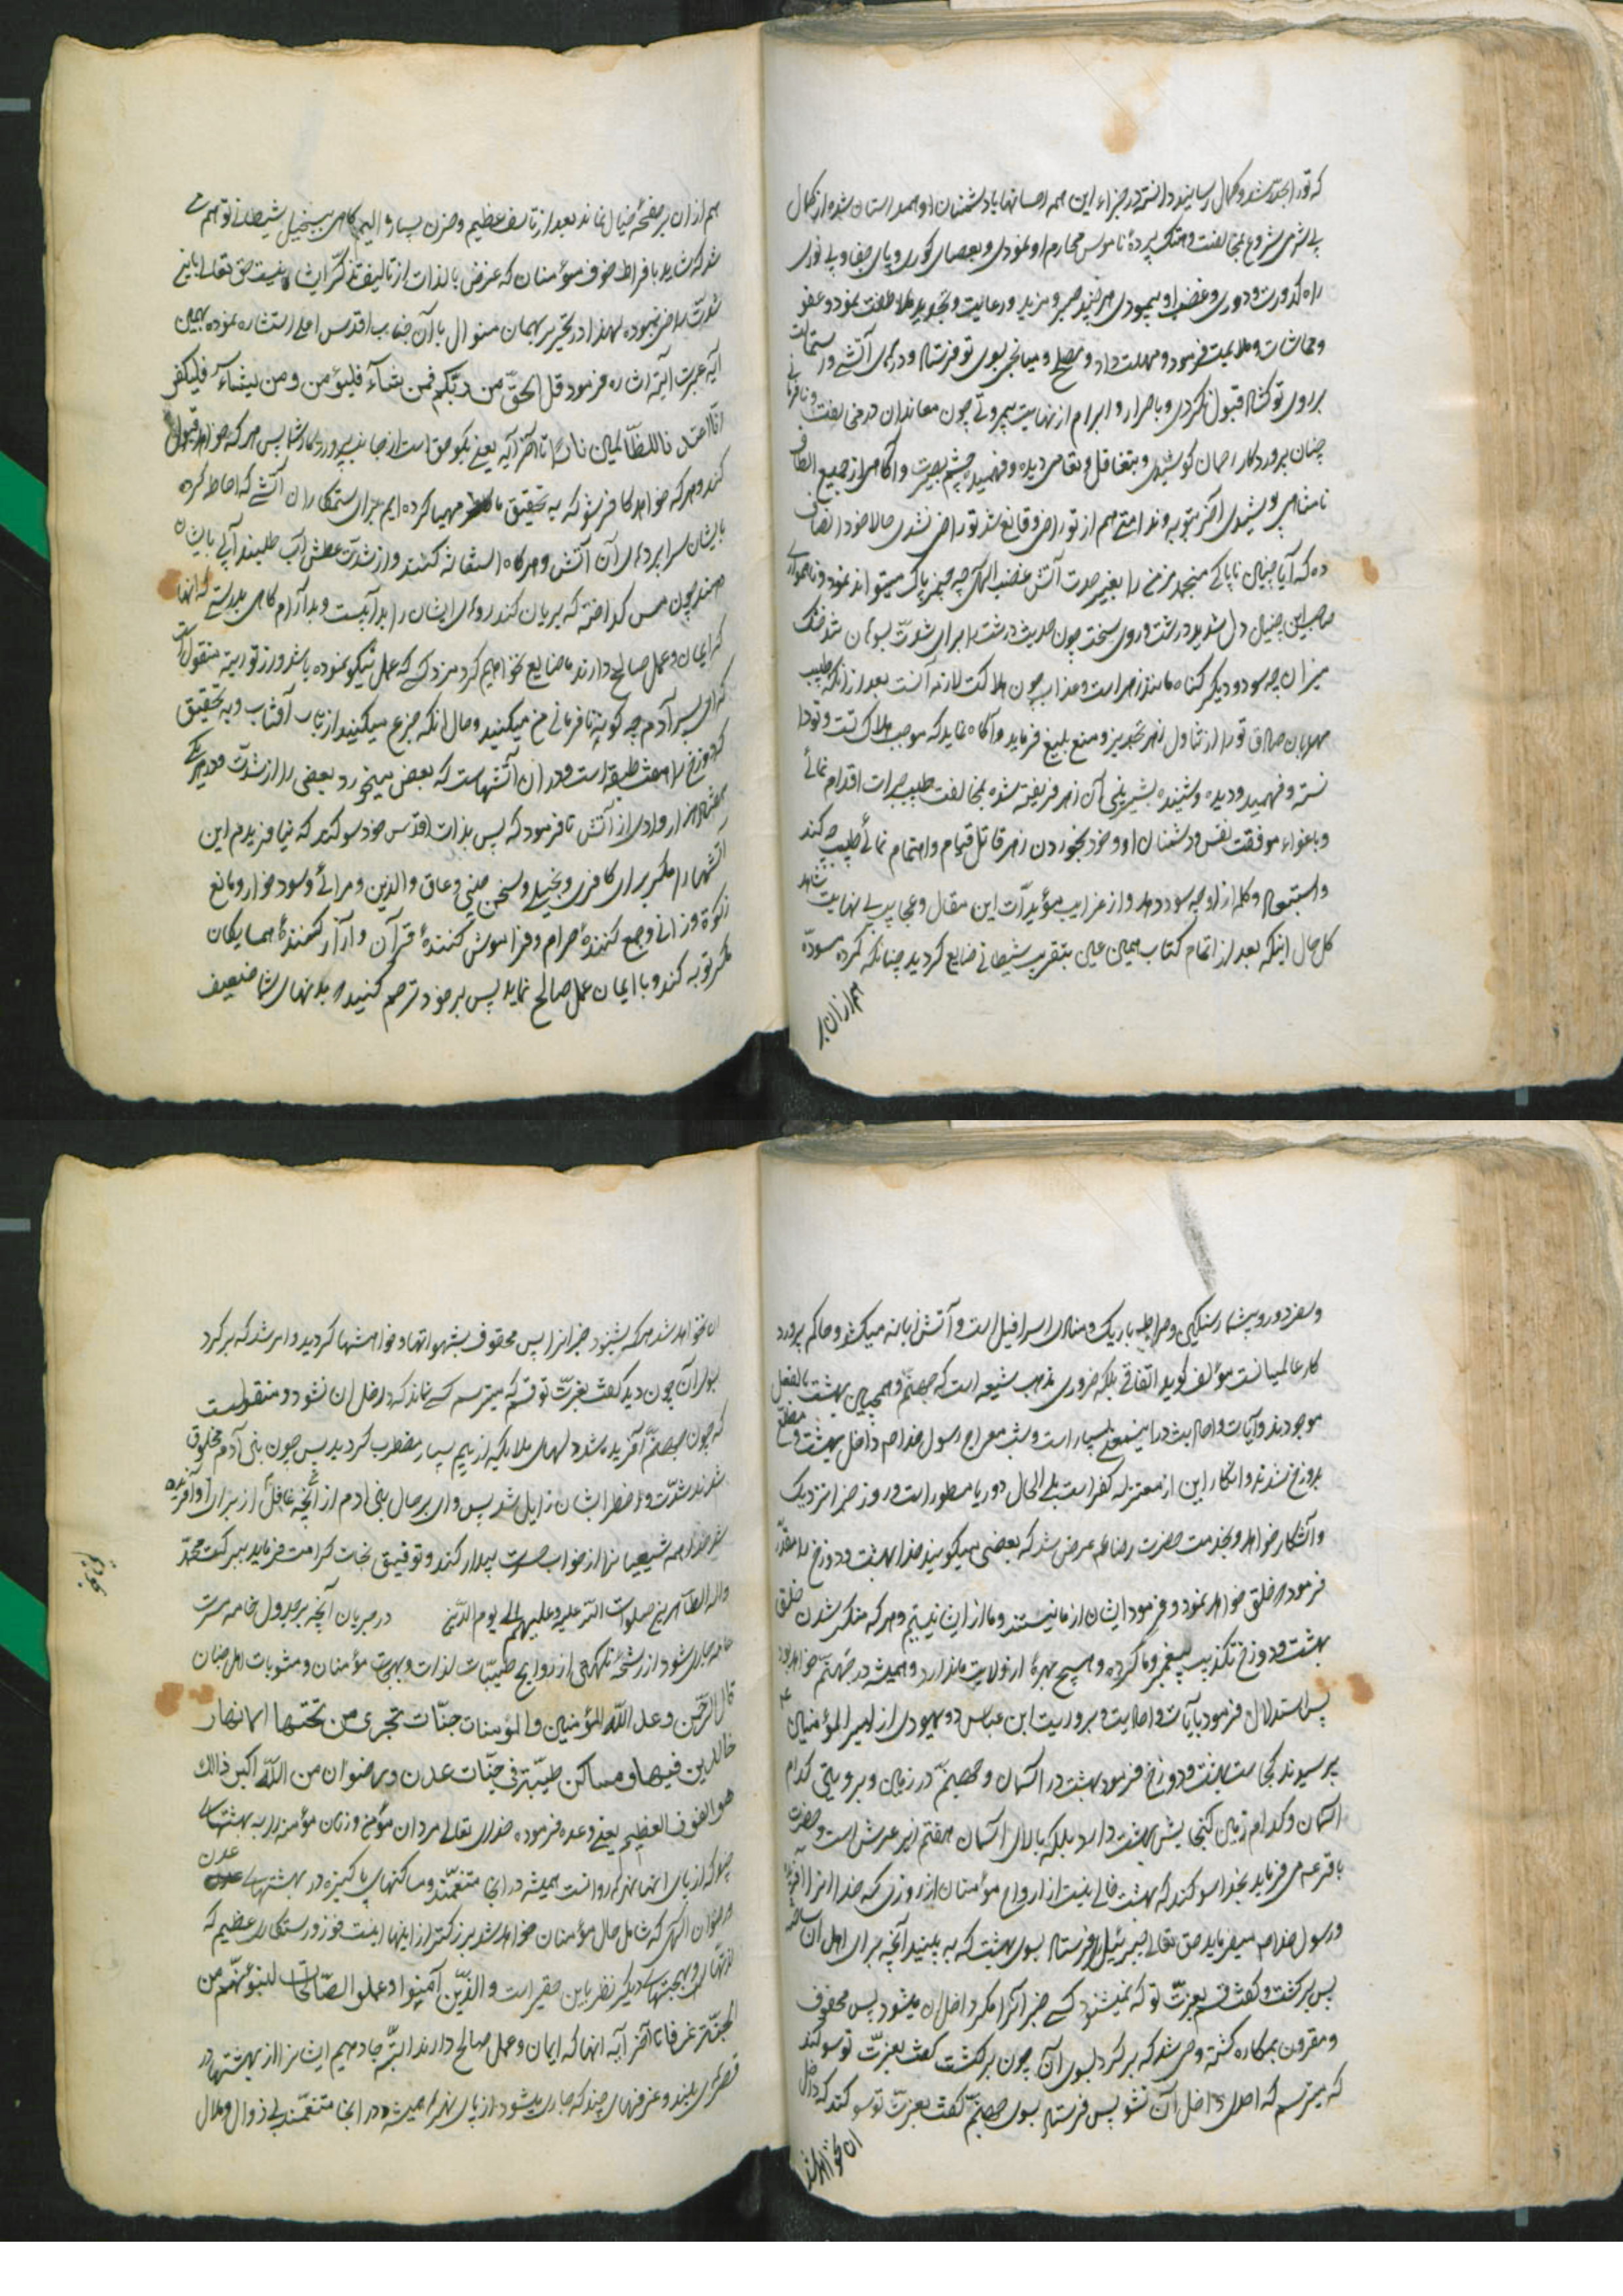 که تو را بحدّ رشد و کمال رسانید دانسته در جزاء این همه احسانها با دشمنان او همداستان شده از کمال
بی شرمی شروع بمخالفت و هتک پردهٔ ناموس محارم او نمودی و بعصای کوری و پای جفا و بی نوری
راه کدورت و دوری و غضب او پیمودی هر چند صبر و مزید و رعایت و تجدید ملاطفت نمود و عفو
و مماشات و ملایمت فرمود و مهلت داد و مصلح و میانجی بسوی تو فرستاد و درهای آشتی و
بر روی تو گشاد قبول نکردی و باصرار و ابرام از نهایت بیمروتی چون معاندان در مخالفت
چنان پروردگار رحمان کوشیدی و بتغافل و تعامی دیده و فهمیده چشم بصیرت و آگاهی از جمیع الطاف
نامتناهی پوشیدی آخر بتوبه و ندامتی هم از تو راضی و قانع شد تو راضی نشدی حالا خود انصاف
ده که آیا چنین ناپاکی منجمد مزمن را بغیر حدت آتش غضب الهی چه چیز پاک میتواند نمود و ناهمواری
صاحب این چنین دل شدید درشت و روی سخت چون حدیث درشت را برای شدّت
میزان چه سود و دیگر گناه مانند زهر است و عذاب چون هلاکت لازمه آنست بعد از آنکه طبیب
مهربان صادق تو را از تناول زهر تحذیر و منع بلیغ فرماید و آگاه نماید که موجب هلاک تست و تو دا
نسته و فهمیده و دیده و شنیده بشیرینی آن زهر فریفته شده بمخالفت طبیب جرات اقدام نمائی
و باغواء موفقت نفس و دشمنان او و خود بخوردن زهر قاتل قیام و اهتمام نمائی طبیب چه کند
و استبعاد و گله از او چه سود دهد و از غرایب مؤیدّات این مقال و عجایب بی نهایت شاهد
کل حال اینکه بعد از اتمام کتاب همین عین بتقریب شیطانی ضایع گردید چنانکه گرده مسودّه
هم از ان بر
هم از ان بر صفحهٔ خیال نماند بعد از تاسف عظیم و حزن بسیار الیم گاهی بتخییل شیطانی توهم می
شد که شاید بافراط خوف مؤمنان که غرض بالذات از تالیف تذکّر ایشانست حق تعالی باین
شدّت راضی نبوده لهذا در تحریر بهمان منوال با آن جناب اقدس اعلی استشاره نموده بهمین
آیه عبرت آیة اشاره فرمود قل الحقّ من ربّکم فمن شآء فلیؤمن و من یشآء فلیکفر
انّا اعتدنا للظّالمین نارًا تا آخر آیه یعنی بگو حق است از جانب پروردگار شما پس هر که خواهد قبول
کند و هر که خواهد کافر شو که به تحقیق ما مهیا کرده ایم برای ستمکاران آتشی که احاطه کرده
بایشان سراپردهای آن آتش و هر گاه استغاثه کنند و از شدّت عطش آب طلبیند آبی بایشان
دهند چون مس گداخته که بریان کند روهای ایشان را بد آبیست و بد آرام گاهی بدرستی که آنها
که ایمان و عمل صالح دارند ما ضایع نخواهیم کرد مزد کسی که عمل نیکو نموده باشد و در توریة منقول است
که ای پسر آدم چه گونه نافرمانی من میکنید و حال آنکه جزع میکنید از تاب آفتاب و به تحقیق
که دوزخ را هفت طبقه است و در ان آتشهاست که بعضی میخورد بعضی را از شدّت و در هر یکی
هفتاد هزار وادی از آتش تا فرمود که پس بذات اقدس خود سوگند که نیافریدم این
آتشها را مگر برای کافری و بخیلی و سخن چینی و عاق والدین و مرائی و سود خوار و مانع
زکوة و زانی و جمع کنندهٔ حرام و فراموش کنندهٔ قرآن و آزار کنندهٔ همسایگان
مگر توبه کند و با ایمان عمل صالح نماید پس بر خود ترحم کنید که بدنهای شما ضعیف
و سفر دور و بیشمار سنگین و صراط باریک و منادی اسرافیل است و آتش زبانه میکشد و حاکم پرورد
کار عالمیانست مؤلف گوید اتّفاقی بلکه ضروری مذهب شیعه است که جهنّم و همچنین بهشت بالفعل
موجودند و آیات و احادیث در اینمعنی بسیار است و شب معراج رسول خدا صم داخل بهشت و مطلّع
بدوزخ شدند و انکار این از معتزله کفر است بلی الحال دو دریا مسطور است و روز جزا نزدیک
و آشکار خواهد و بخدمت حضرت رضا عم عرض شد که بعضی میگویند خدا بهشت و دوزخ را مقدّر
فرموده خلق خواهد نمود و فرمود ایشان از ما نیستند و ما از ایشان نیستیم و هر که منکر شدن خلق
بهشت و دوزخ تکذیب پیغمبر و ما کرده و هیچ بهرهٔ از ولایت ما ندارد و همیشه در جهنّم خواهد بود
پس استدلال فرمود بآیات و احادیث و بروریت ابن عباس دو یهودی از امیر المؤمنین عم
پرسیدند کجاست بهشت و دوزخ فرمود بهشت در آسمان و جهنّم در زمین و بروایتی کدام
آسمان و کدام زمین گنجایش بهشت دارد بلکه بالای آسمان هفتم زیر عرش است و حضرت
باقر عم می فرماید بخدا سوگند که بهشت خالی نیست از ارواح مؤمنان از روزی که خدا انرا آفریده
و رسول خدا صم میفرماید حق تعالی جبرئیل را فرستاد بسوی بهشت که به بیند آنچه برای اهل آن ساخته
پس برگشت و گفت قسم بعزّت تو که نمیشنود کسی خبر آنرا مگر داخل ان میشود پس محفوف
و مقرون بمکاره گشته وحی شد که برگرد بسوی آن چون برگشت گفت بعزّت تو سوگند
که میترسم که احدی داخل آن نشود پس فرستاد بسوی جهنّم گفت بعزّت تو سوگند که داخل
ان نخواهد شد
ان نخواهد شد هر که شنود خبر انرا پس محفوف بشهواتها و خواهشها گردید و امر شد که برگرد
بسوی آن چون دید گفت بعزّت تو قسم که میترسم کسی نماند که داخل ان نشود و منقولست
که چون جهنّم آفریده شد دلهای ملائکه از بیم بسیار مضطرب گردید پس چون بنی آدم مخلوق
شدند شدّت و اضطراب ایشان زایل شد پس وای بر حال بنی ادم از آنچه غافل از برای او آفریده
شد خدا همه شیعیانرا از خواب بیدار کند و توفیق نجات کرامت فرماید ببرکت محمّد
و اله الطّاهرین صلوات اللّه علیه و علیهم الی یوم الدّین در جریان آنچه بر جدول خامه مسرت
جاری شود از رشحهٔ نکهتی از روایح طیّبات لذات و بهجت مؤمنان و مثوبات اهل جنان
قال الرّحمن وعد اللّه المؤمنین و المؤمنات جنّات تجری من تحتها الانهار
خالدین فیها و مساکن طیّبة فی جنّات عدن و رضوان من اللّه اکبر ذالک
هو الفوز العظیم یعنی وعده فرموده خدای تعالی مردان مؤمن و زنان مؤمنه را به بهشتهای
چند که از پای انها نهرها روانست همیشه در انجا متنعّمند و مساکنهای پاکیزه در بهشتهای عدن
و رضوان الهی که شامل حال مؤمنان خواهد شد بزرگتر از اینها اینست فوز و رستگاری عظیم که
لذتها و بهجتهای دیگر نظر باین حقیر است و الّذین آمنوا و عملو الصّالحات لنبوّئنّهم من
الجنّة غرفا تا آخر آیه انها که ایمان و عمل صالح دارند البتّه جا دهیم ایشانرا از بهشتها در
قصرهای بلند و غرفهای چند که جاری میشود از پای نهرها همیشه در انجا متنعّمند بی زوال و ملال